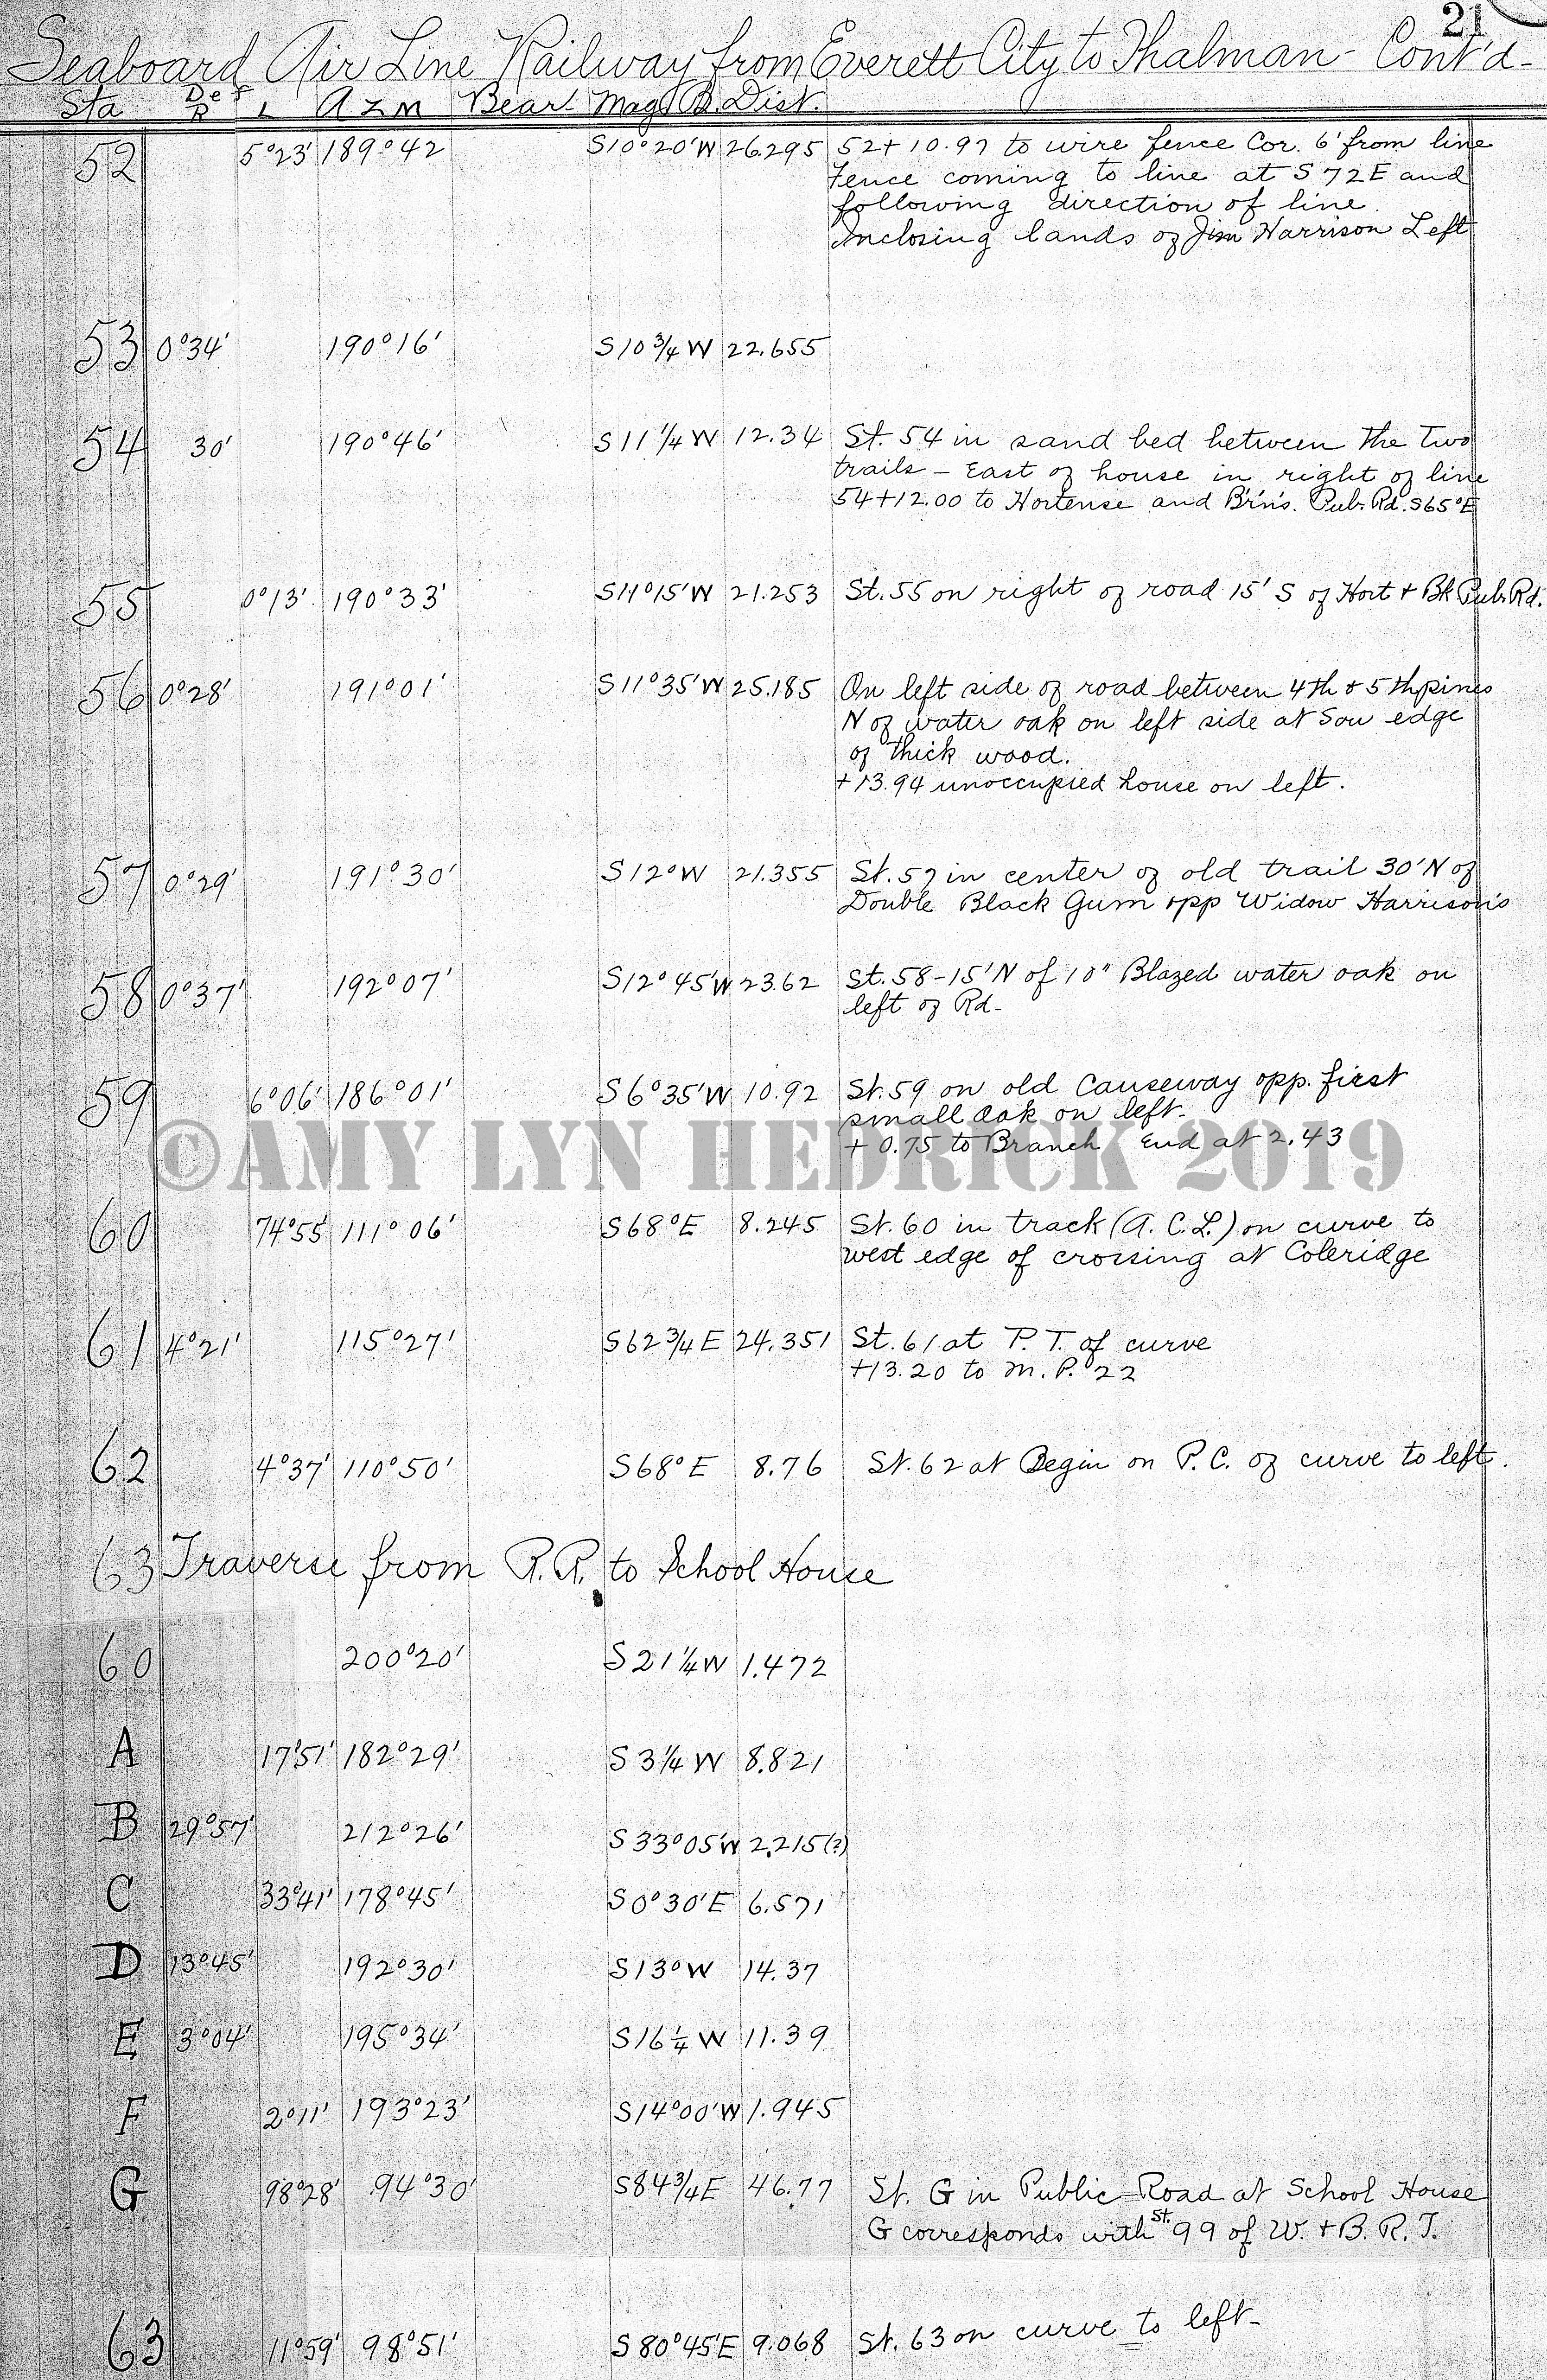 21
Seaboard Air Line Railway from Everett City to Thalman - Cont'd -
Sta Def R L Azm Bear Mag B. Dist.
52 5°23' 189°42 S10°20'W 26.295 52+10.97 to wire fence Cor. 6' from line
Fence coming to line at S72E and
following direction of line
Inclosing lands of Jim Harrison Left
53 0°34' 190°16' S10 3/4 W 22.655
54 30' 190°46' S11 1/4 W 12.34 St. 54 in sand bed between the two
trails - East of house in right of line
54+12.00 to Hortense and B'r'n's. Pub. Rd. S65°E
55 0°13' 190°33' S11°15'W 21.253 St. 55 on right of road 15' S of Hort + Bk Pub. Rd.
56 0°28' 191°01' S11°35'W 25.185 On left side of road between 4th & 5th pines
N of water oak on left side at Sou edge
of thick wood.
+13.94 unoccupied house on left.
57 0°29' 191°30' S12°W 21.355 St. 57 in center of old trail 30'N of
Double Black Gum opp Widow Harrison's
58 0°37' 192°07' S12°45'W 23.62 St. 58-15'N of 10" Blazed water oak on
left of Rd-
59 6°06' 186°01' S6°35'W 10.92 St. 59 on old Causeway opp. first
small oak on left-
+ 0.75 to Branch End at 2.43
©AMY LYN HEDRICK 2019
60 74°55' 111°06' S68°E 8.245 St. 60 in track (A.C.L.) on curve to
west edge of crossing at Coleridge
61 4°21' 115°27' S62 3/4 E 24.351 St. 61 at P.T. of curve
+13.20 to M.P. 22
62 4°37' 110°50' S68°E 8.76 St. 62 at Begin on P.C. of curve to left.
63 Traverse from R.R. to School House
60 200°20' S21 1/4 W 1.472
A 17°51' 182°29' S3 1/4 W 8.821
B 29°57' 212°26' S33°05'W 2.215(?)
C 33°41' 178°45' S0°30'E 6.571
D 13°45' 192°30' S13°W 14.37
E 3°04' 195°34' S16 1/4 W 11.39
F 2°11' 193°23' S14°00'W 1.945
G 98°28' 94°30' S84 3/4 E 46.77 St. G in Public Road at School House
G corresponds with St. 99 of W. + B. R. T.
63 11°59' 98°51' S80°45'E 9.068 St. 63 on curve to left-